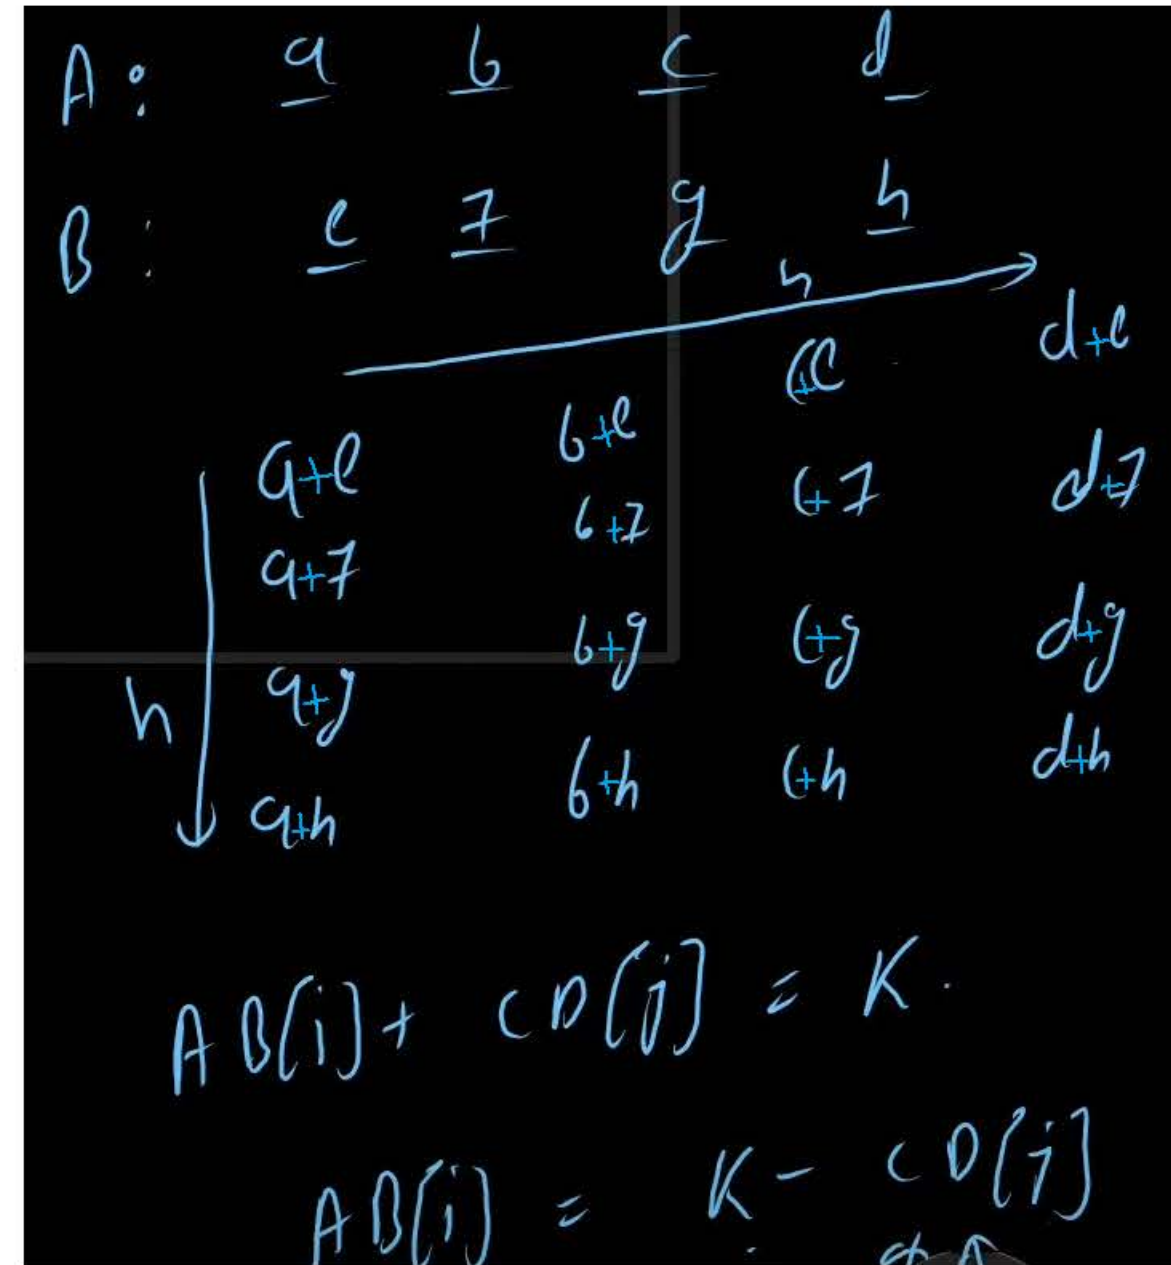 A: a b c d
B: e f g h
n
a+e b+e c+e d+e
a+f b+f c+f d+f
a+g b+g c+g d+g
n
a+h b+h c+h d+h
AB[i] + CD[j] = K.
AB[i] = K - CD[j]